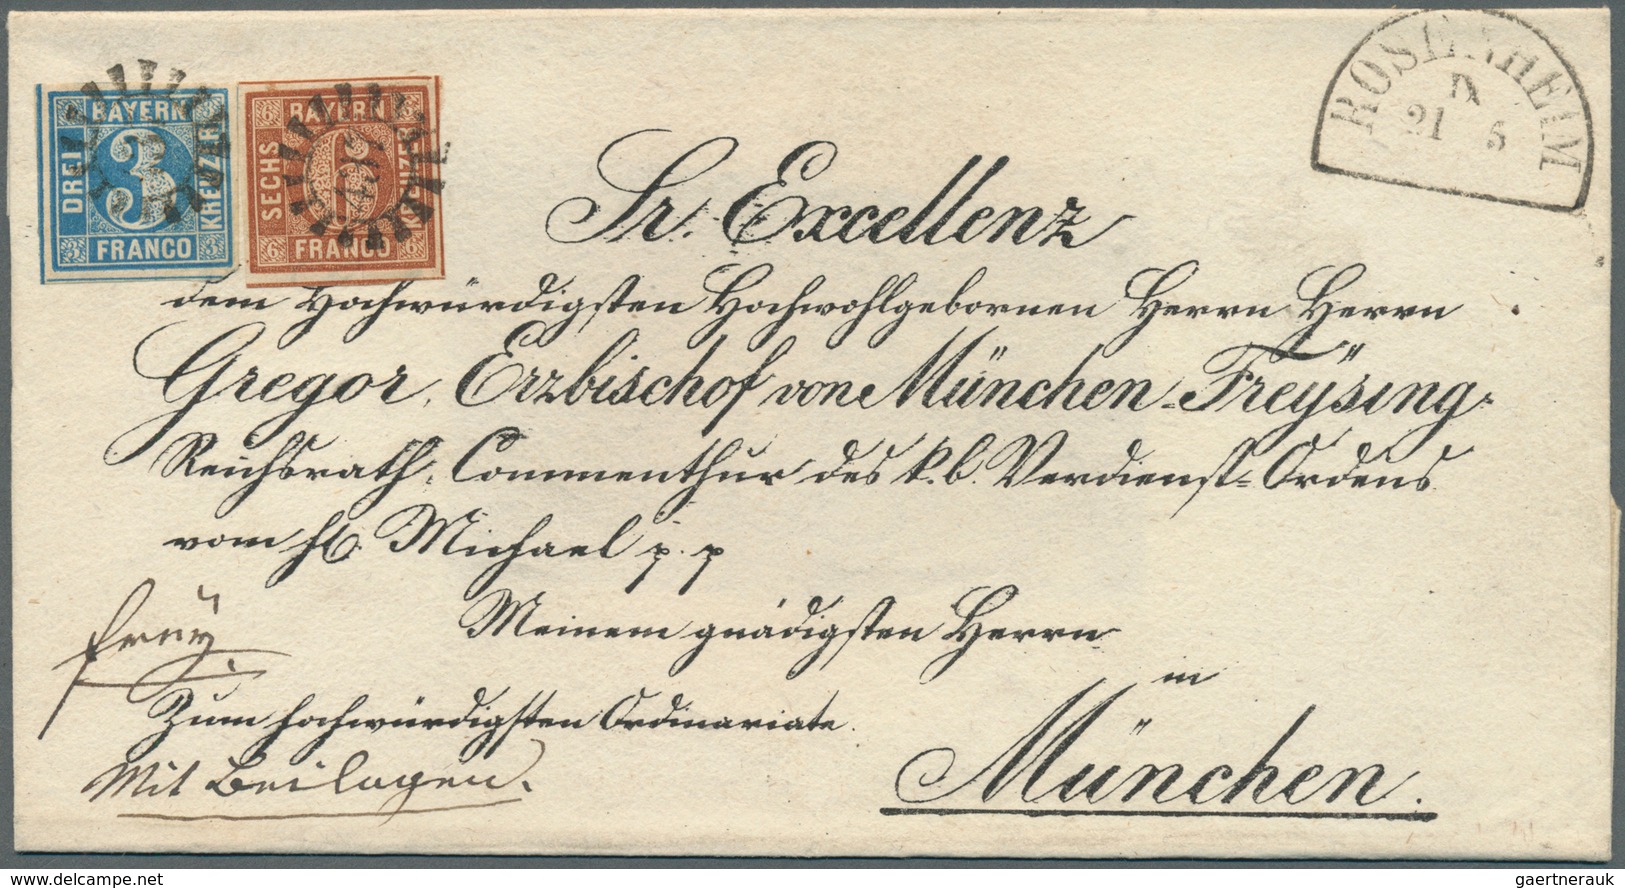 BAYERN
DREI
3
KREUZER
FRANCO
3
3
6
BAYERN
SECHS
6
KREUZER
6
FRANCO
6
ROSENHEIM
21 5
Sr. Excellenz
dem Hochwürdigsten Hochwohlgebornen Herrn Herrn
Gregor, Erzbischof von München-Freÿsing,
Reichsrath, Commenthur des k. b. Verdienst-Ordens
vom hl. Michael p. p
Meinem gnädigsten Herrn
freÿ.
in
Zum hochwürdigsten Ordinariate.
München.
Mit Beilagen.
www.delcampe.net
gaertnerauk